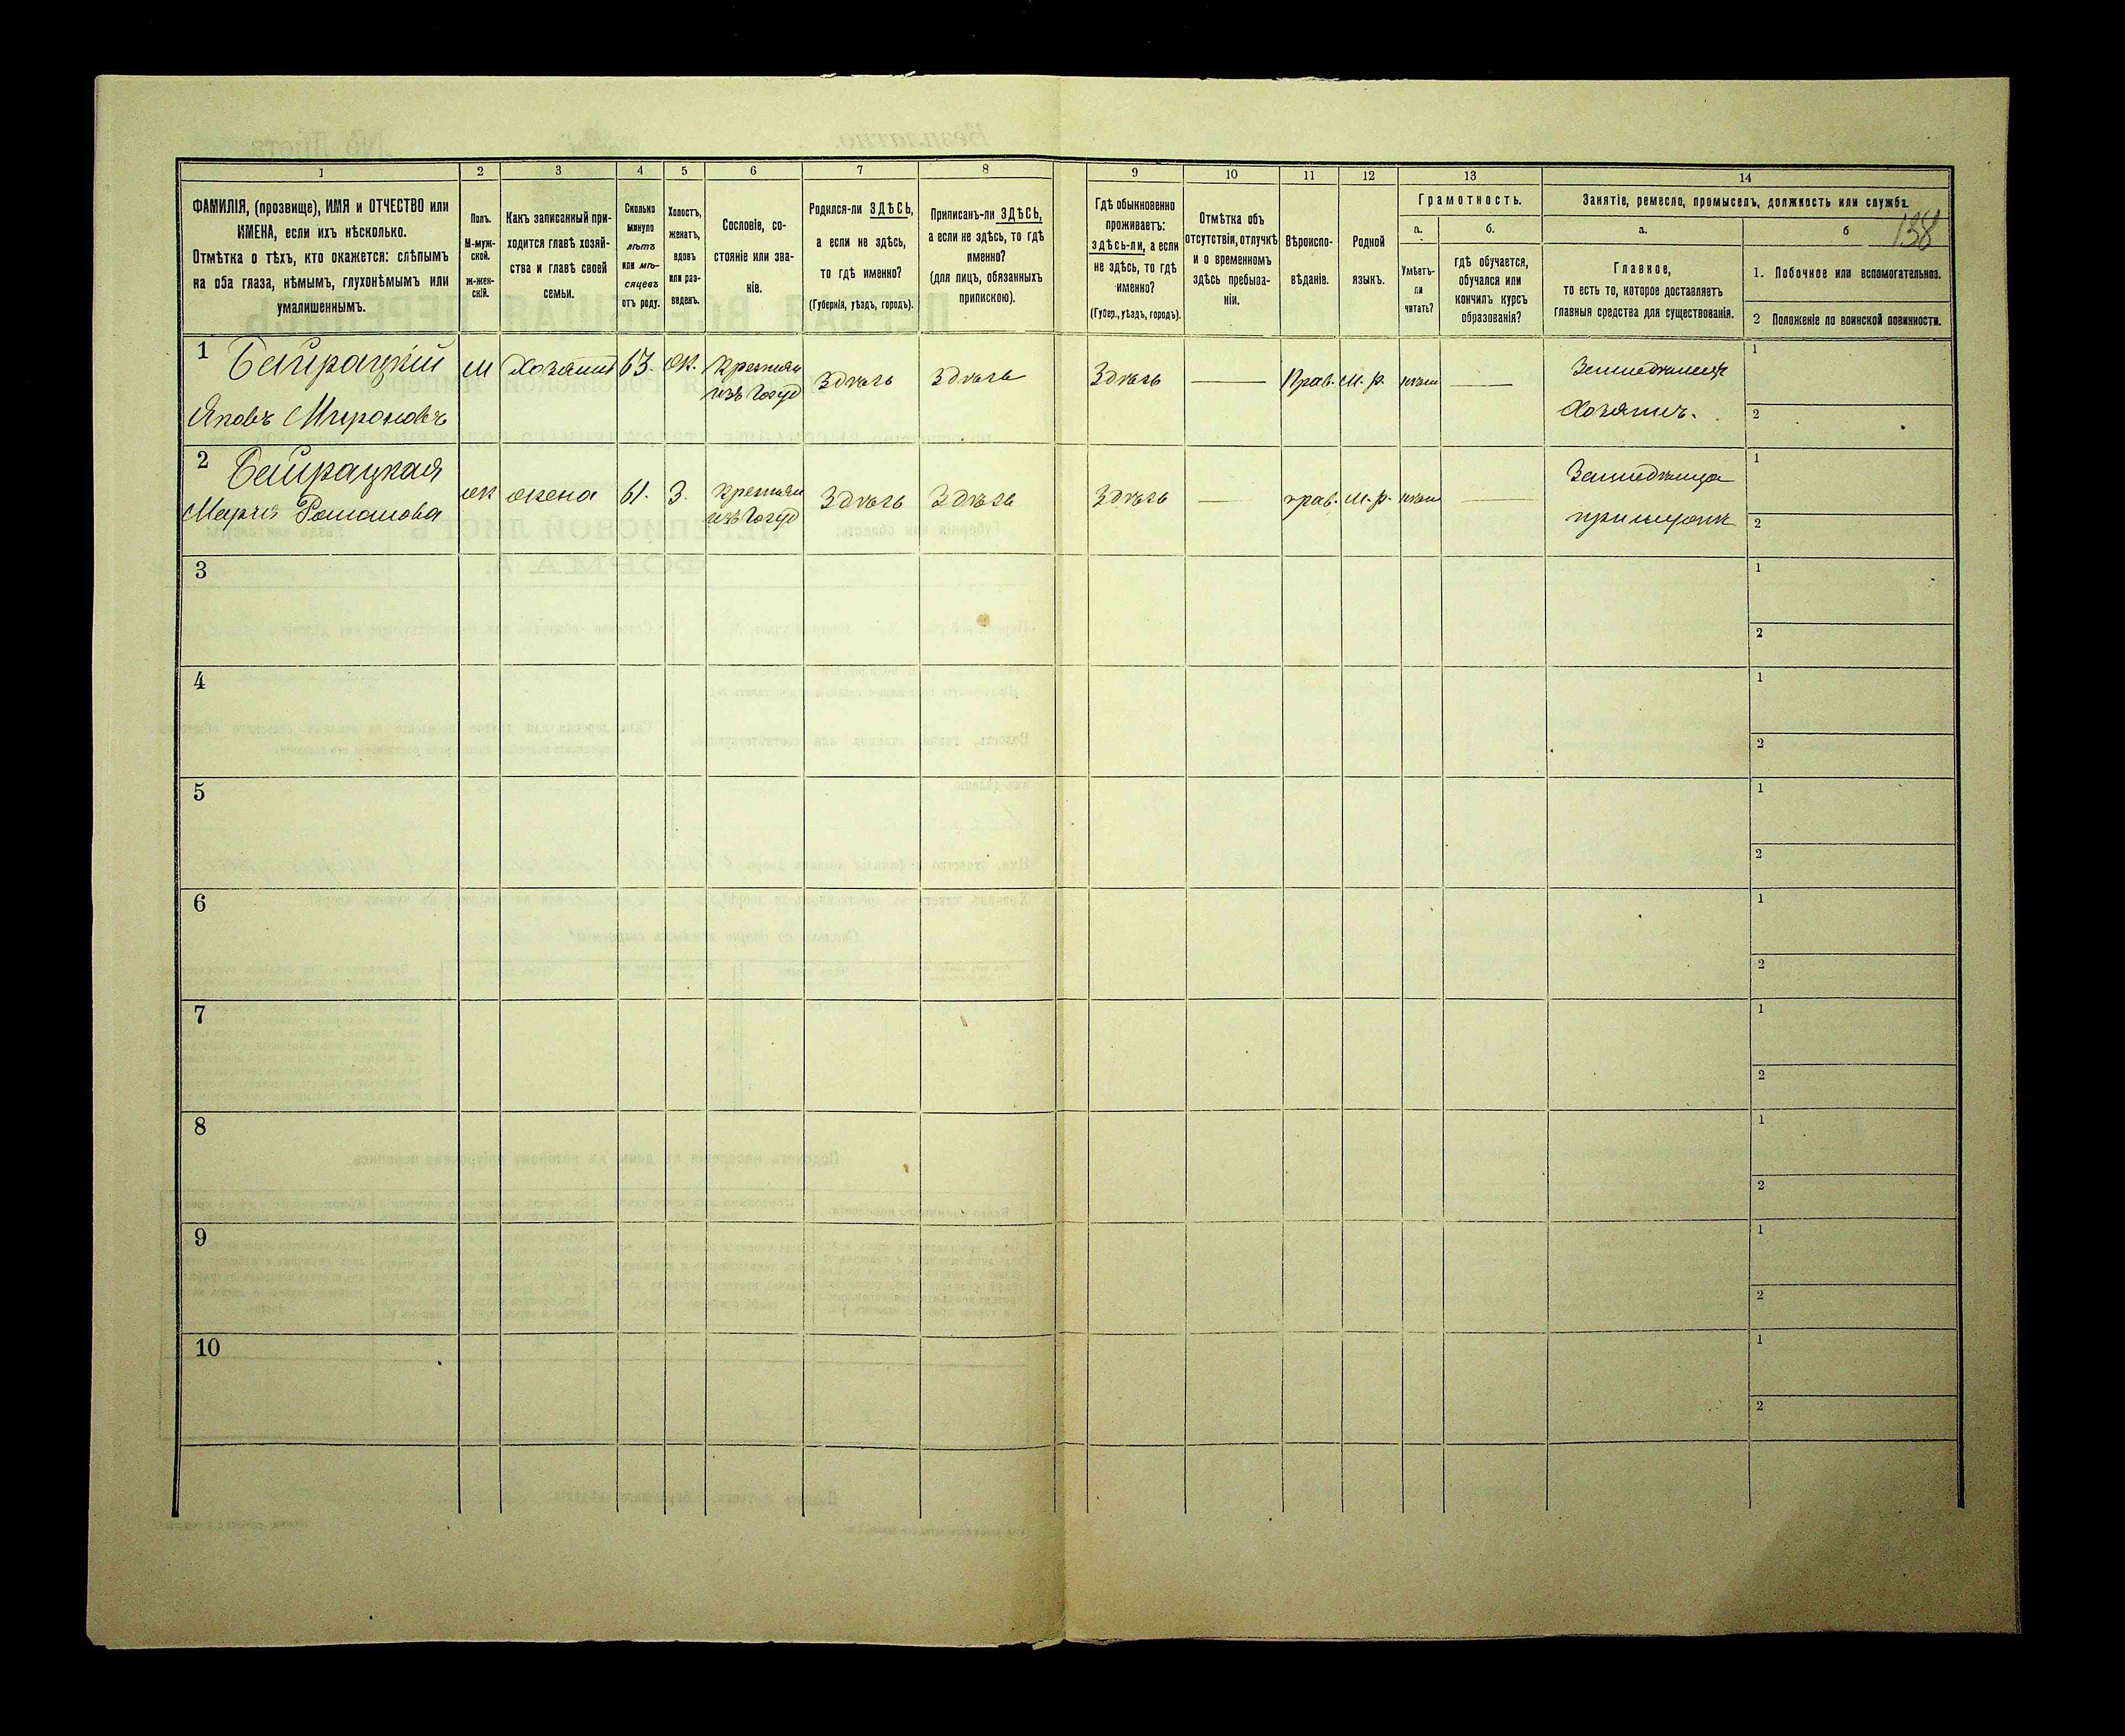 1 2 3 4 5 6 7 8 9 10 11 12 13 14
ФАМИЛІЯ, (прозвище), ИМЯ и ОТЧЕСТВО или
ИМЕНА, если ихъ нѣсколько.
Отмѣтка о тѣхъ, кто окажется: слѣпымъ
на оба глаза, нѣмымъ, глухонѣмымъ или
умалишеннымъ.
Полъ.
М-муж-
ской.
ж-жен-
скій.
Какъ записанный при-
ходится главѣ хозяй-
ства и главѣ своей
семьи.
Сколько
минуло
лѣтъ
или мѣ-
сяцевъ
отъ роду.
Холостъ,
женатъ,
вдовъ
или раз-
веденъ.
Сословіе, со-
стояніе или зва-
ніе.
Родился-ли ЗДѢСЬ,
а если не здѣсь,
то гдѣ именно?
(Губернія, уѣздъ, городъ).
Приписанъ-ли ЗДѢСЬ,
а если не здѣсь, то гдѣ
именно?
(для лицъ, обязанныхъ
припискою).
Гдѣ обыкновенно
проживаетъ:
здѣсь-ли, а если
не здѣсь, то гдѣ
именно?
(Губер., уѣздъ, городъ).
Отмѣтка объ
отсутствіи, отлучкѣ
и о временномъ
здѣсь пребыва-
ніи.
Вѣроиспо-
вѣданіе.
Родной
языкъ.
Грамотность.
а.
Умѣетъ-
ли
читать?
б.
гдѣ обучается,
обучался или
кончилъ курсъ
образованія?
Занятіе, ремесло, промыселъ, должность или служба.
138
а.
Главное,
то есть то, которое доставляетъ
главныя средства для существованія.
б
1. Побочное или вспомогательное.
2 Положеніе по воинской повинности.
1 Байрацкій М Хозяинъ 63. Ж. Крестьян Здѣсь Здѣсь Здѣсь — Прав. М. р. — 1
изъ Госуд
Яковъ Мироновъ Хозяинъ. 2
2 Байрацкая ж жена 61. З. Крестьян Здѣсь Здѣсь Здѣсь — прав. М. р. — 1
изъ Госуд
Марія Романова 2
3 1
2
4 1
2
5 1
2
6 1
2
7 1
2
8 1
2
9 1
2
10 1
2